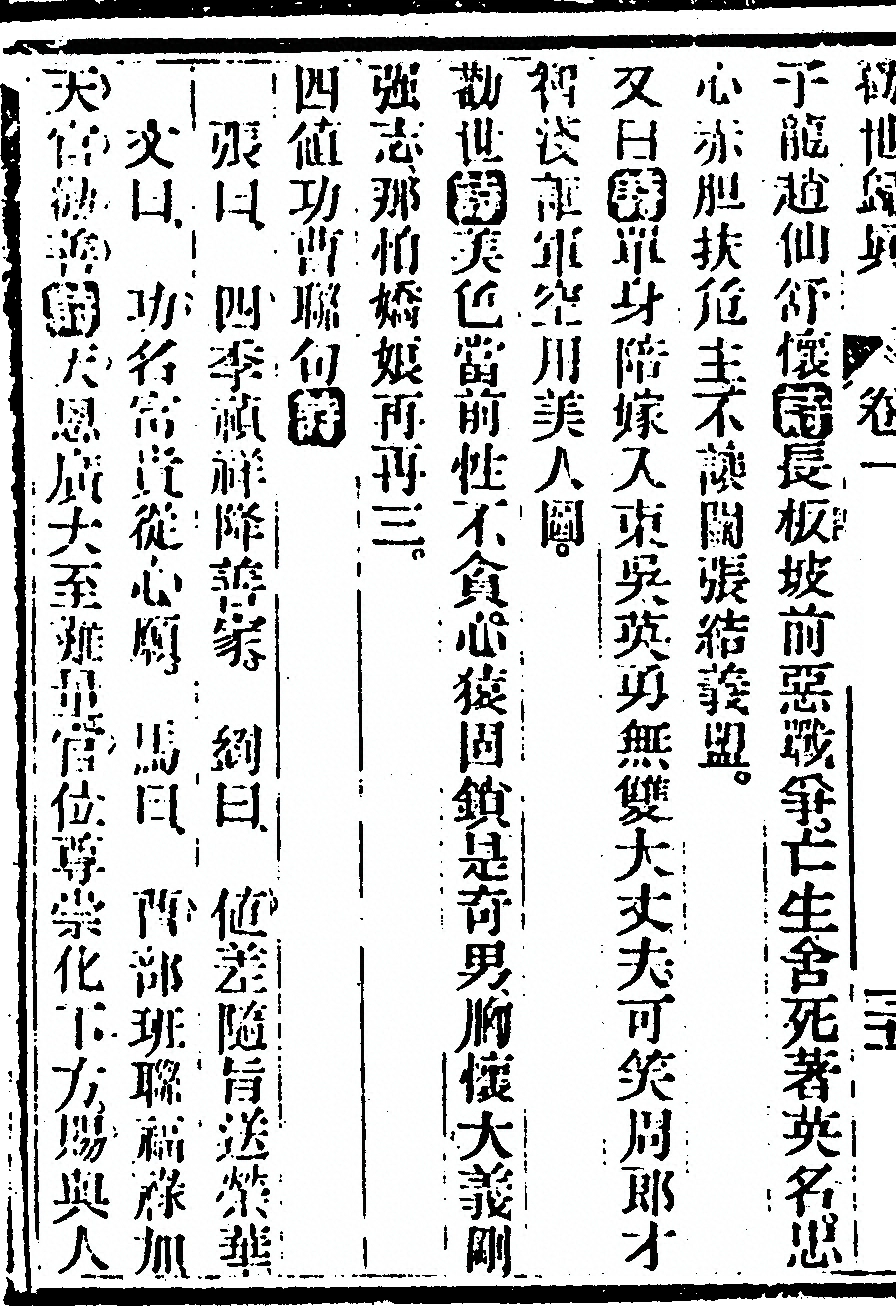 世歸真 卷一
子龍趙仙舒懷詩長板坡前惡戰爭亡生舍死著英名忠
心赤胆扶危主不讓關張結義盟。
又曰詩單身陪嫁入東吳英勇無雙大丈夫可笑周郎才
智淺誆軍空用美人圖。
勸世詩美色當前性不貪心猿固鎖是奇男胸懷大義剛
强志那怕嬌娘再再三。
四值功曹聯句詩
張曰、四季禎祥降善家 劉曰、值差隨旨送榮華
文曰、功名富貴從心願 馬曰、部班聯福祿加
天官勸善詩天恩廣大至難量官位尊崇化下方賜與人